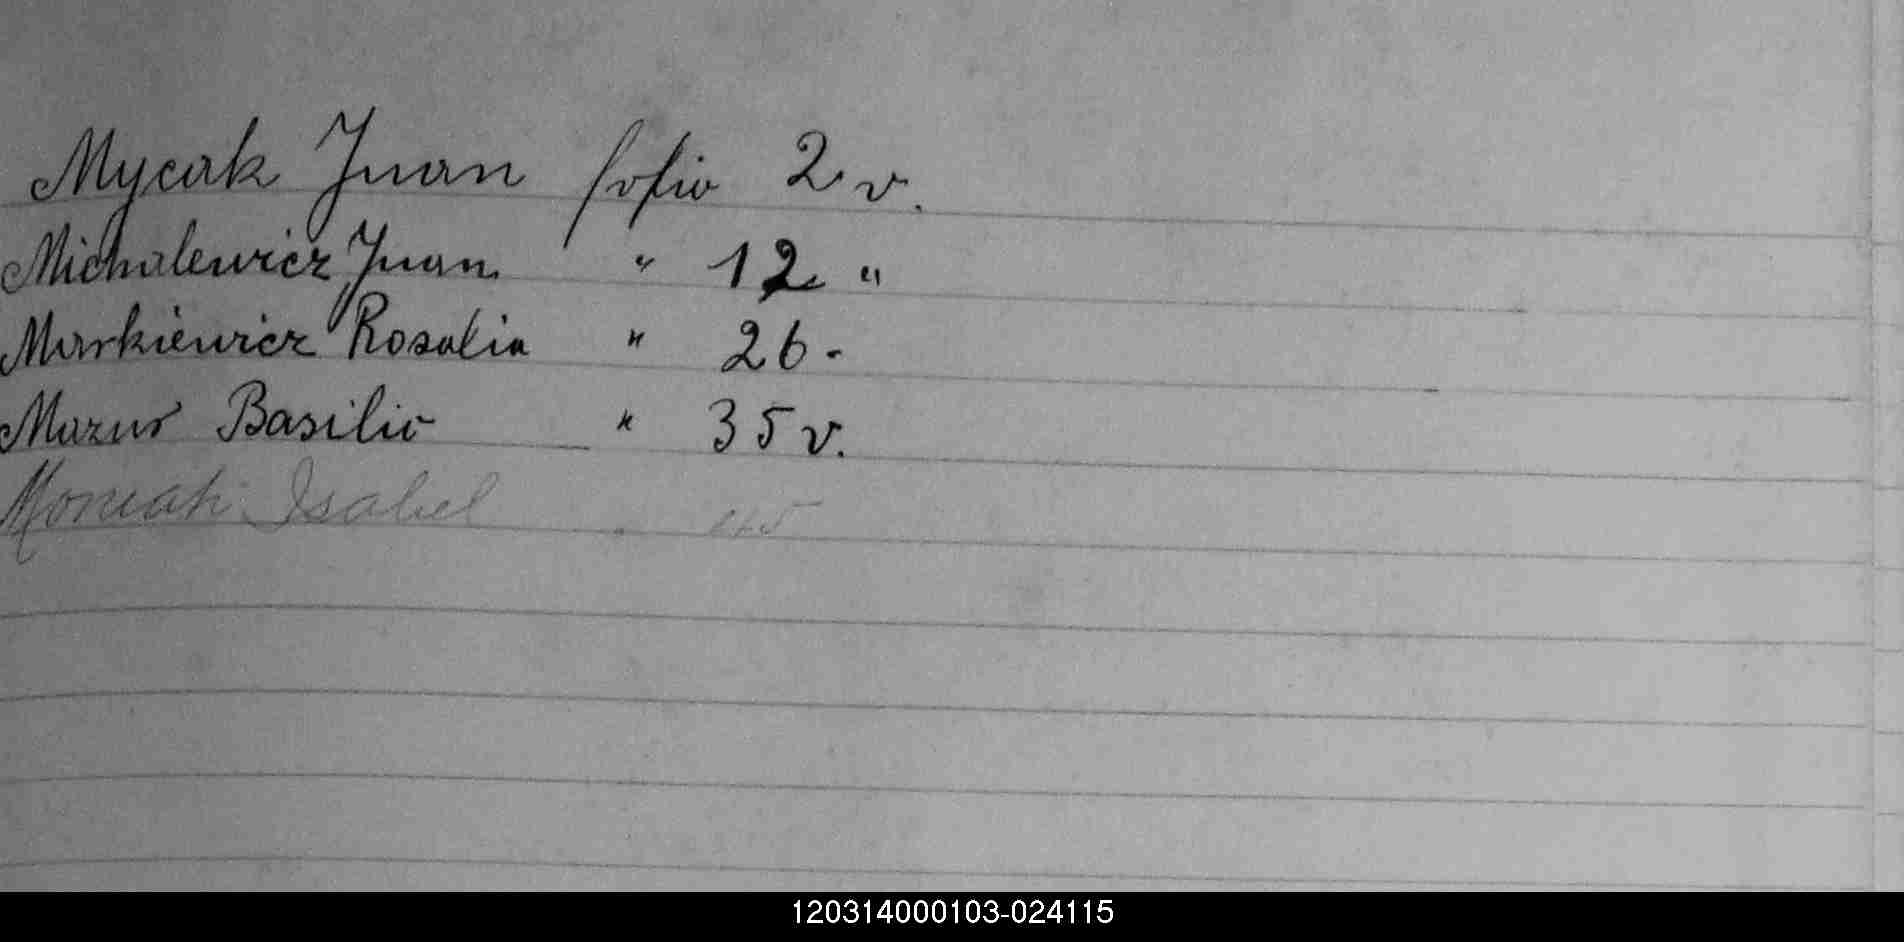 Mycak Juan folio 2 v.
Michalewicz Juan " 12 "
Markiewicz Rosalia " 26 -
Mazur Basilio " 35 v.
Isabel 45
120314000103-024115